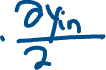 . ∂y_in / 2